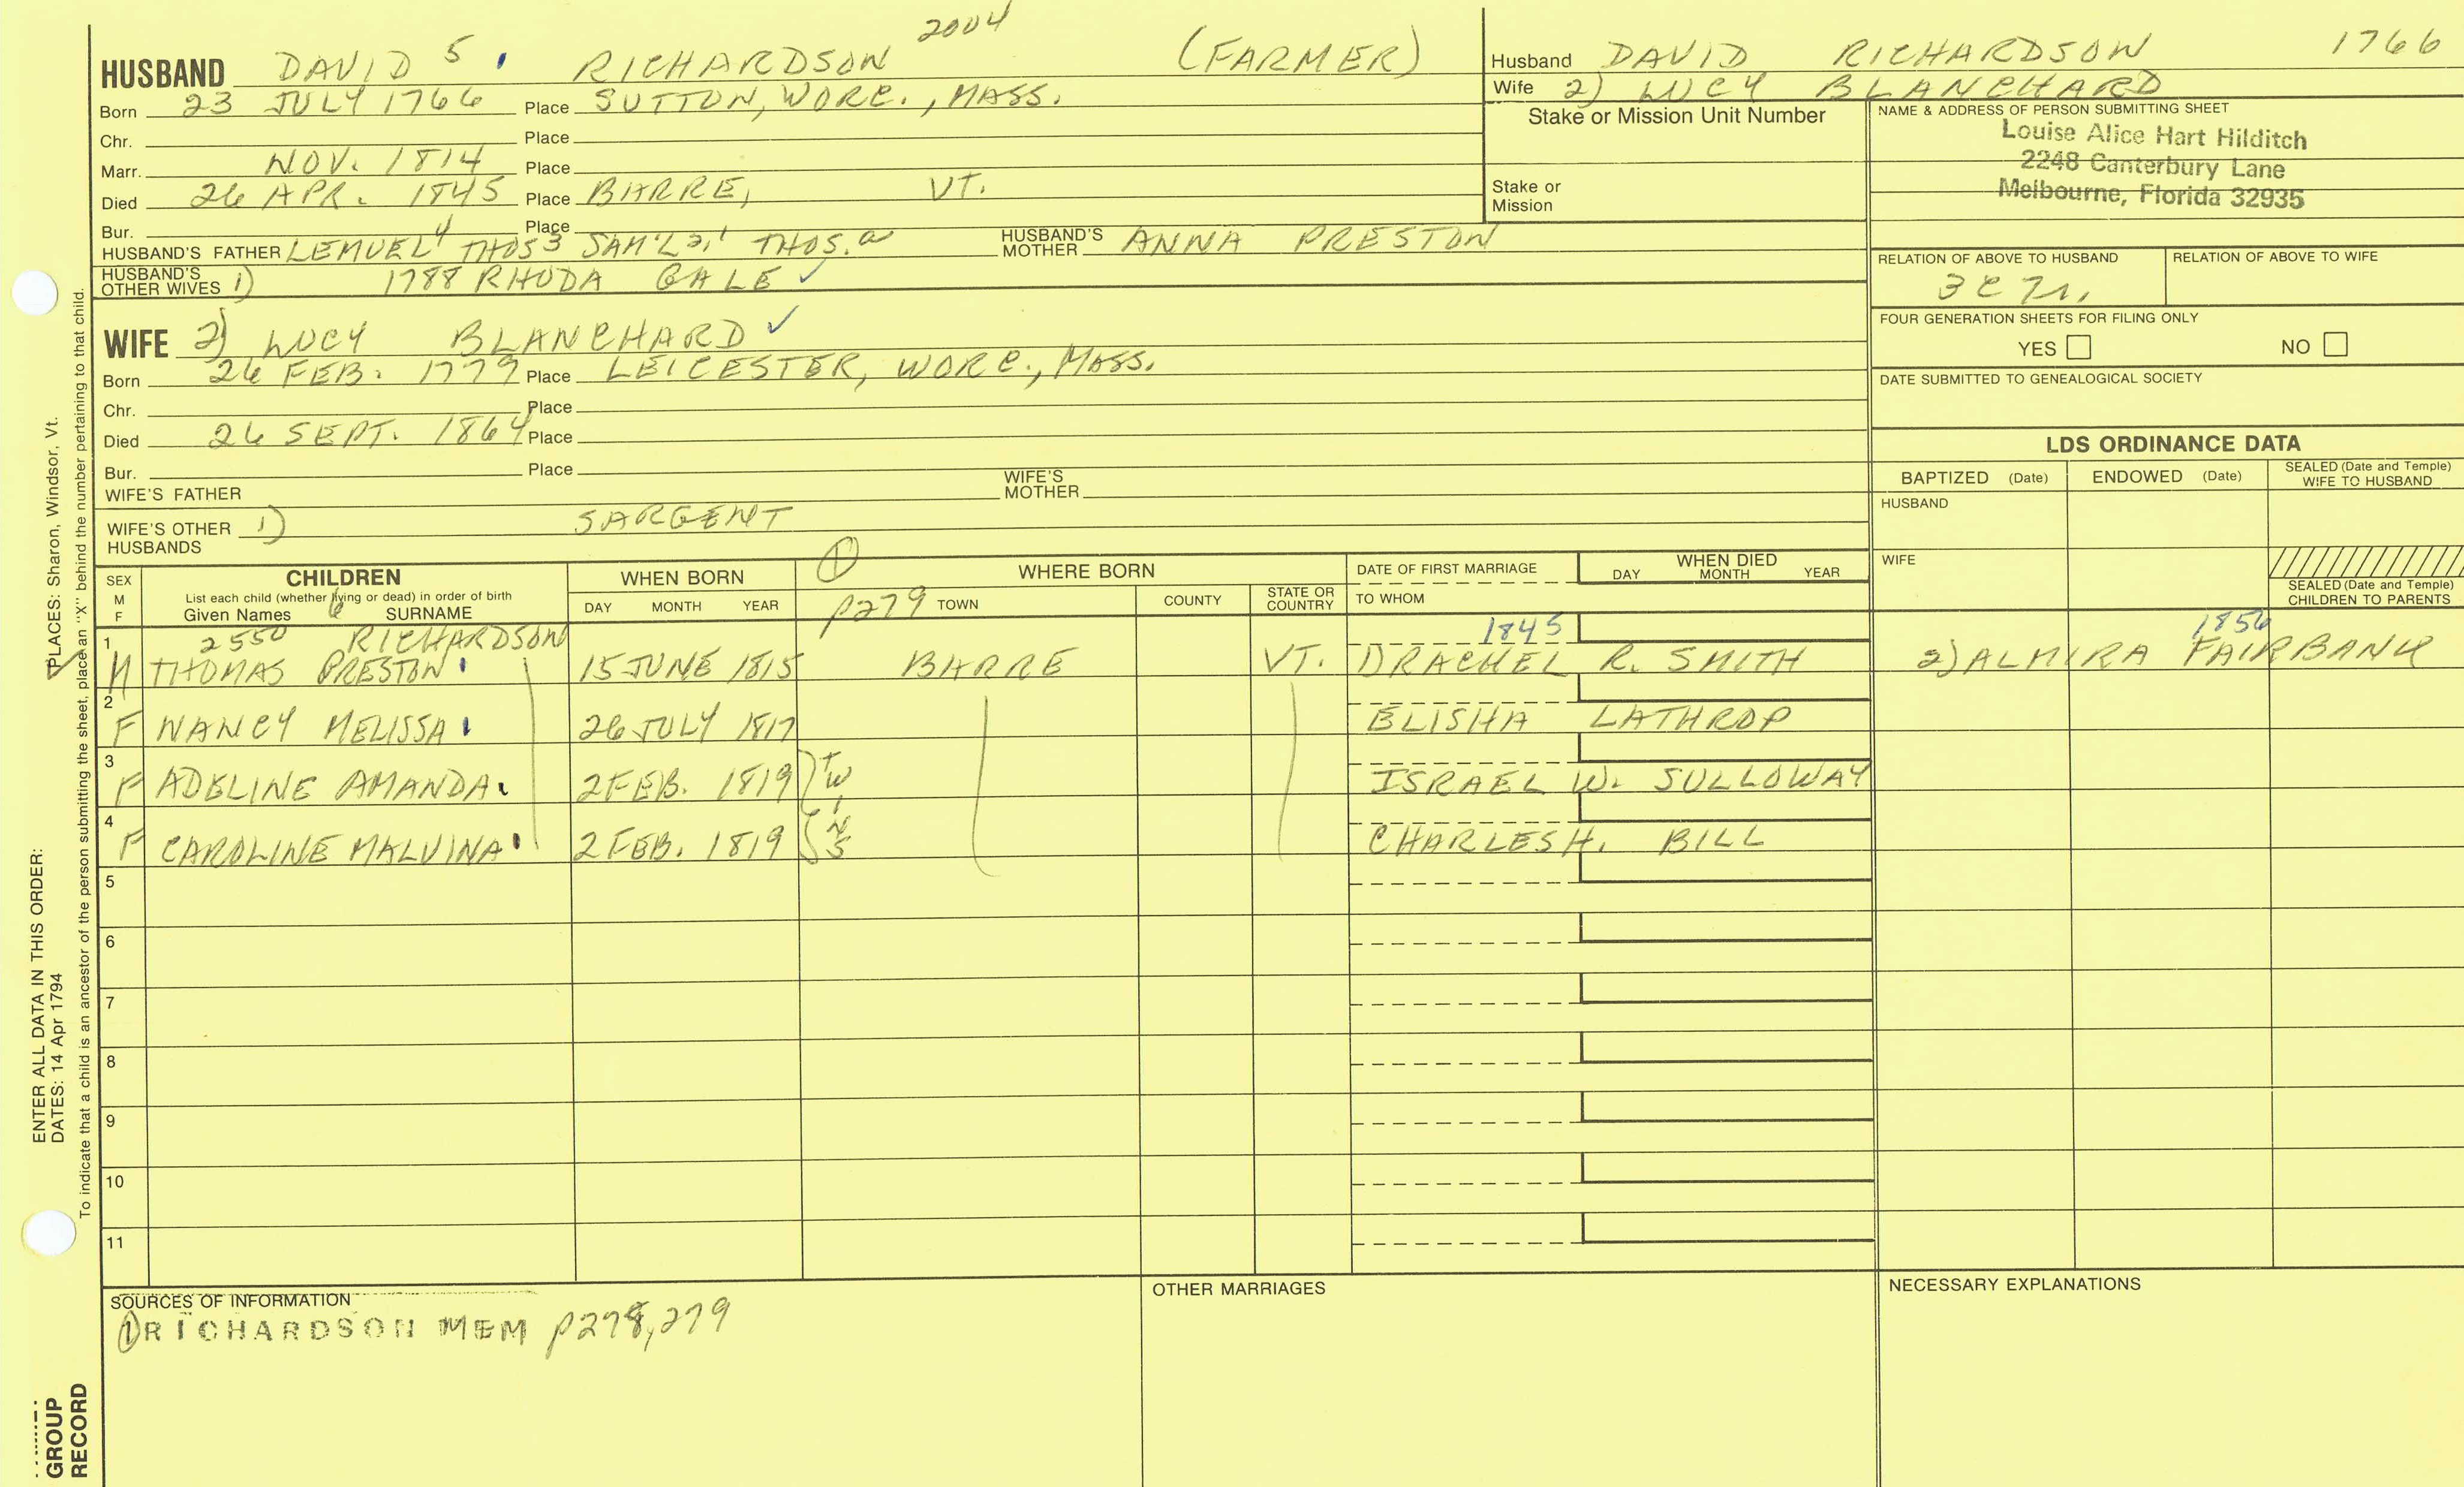 2004
HUSBAND DAVID 5 RICHARDSON (FARMER)
Born 23 JULY 1766 Place SUTTON, WORC., MASS.
Chr. Place
Marr. NOV. 1814 Place
Died 26 APR. 1845 Place BARRE, VT.
Bur. Place
HUSBAND'S FATHER LEMUEL 4 THOS 3 SAM'L 2,1 THOS. a HUSBAND'S MOTHER ANNA PRESTON
HUSBAND'S OTHER WIVES 1) 1788 RHODA GALE ✓
WIFE 2) LUCY BLANCHARD ✓
Born 26 FEB. 1779 Place LEICESTER, WORC., MASS.
Chr. Place
Died 26 SEPT. 1864 Place
Bur. Place
WIFE'S FATHER WIFE'S MOTHER
WIFE'S OTHER HUSBANDS 1) SARGENT
Husband DAVID RICHARDSON 1766
Wife 2) LUCY BLANCHARD
Stake or Mission Unit Number
Stake or Mission
NAME & ADDRESS OF PERSON SUBMITTING SHEET
Louise Alice Hart Hilditch
2248 Canterbury Lane
Melbourne, Florida 32935
RELATION OF ABOVE TO HUSBAND RELATION OF ABOVE TO WIFE
FOUR GENERATION SHEETS FOR FILING ONLY
YES NO
DATE SUBMITTED TO GENEALOGICAL SOCIETY
LDS ORDINANCE DATA
BAPTIZED (Date) ENDOWED (Date) SEALED (Date and Temple) WIFE TO HUSBAND
HUSBAND
WIFE
SEALED (Date and Temple) CHILDREN TO PARENTS
SEX M F
CHILDREN
List each child (whether living or dead) in order of birth
Given Names 6 SURNAME
WHEN BORN
DAY MONTH YEAR
① p279
WHERE BORN
TOWN COUNTY STATE OR COUNTRY
DATE OF FIRST MARRIAGE
TO WHOM
WHEN DIED
DAY MONTH YEAR
1 2550 RICHARDSON 1845 1856
M THOMAS PRESTON 15 JUNE 1815 BARRE VT. 1) RACHEL R. SMITH 2) ALMIRA FAIRBANK
2
F NANCY MELISSA 26 JULY 1817 ELISHA LATHROP
3
F ADELINE AMANDA 2 FEB. 1819 TW ISRAEL W. SULLOWAY
4
F CAROLINE MALVINA 2 FEB. 1819 INS CHARLES H. BILL
5
6
7
8
9
10
11
SOURCES OF INFORMATION
① RICHARDSON MEM p278, 279
OTHER MARRIAGES
NECESSARY EXPLANATIONS
ENTER ALL DATA IN THIS ORDER:
DATES: 14 Apr 1794
PLACES: Sharon, Windsor, Vt.
To indicate that a child is an ancestor of the person submitting the sheet, place an "X" behind the number pertaining to that child.
GROUP
RECORD